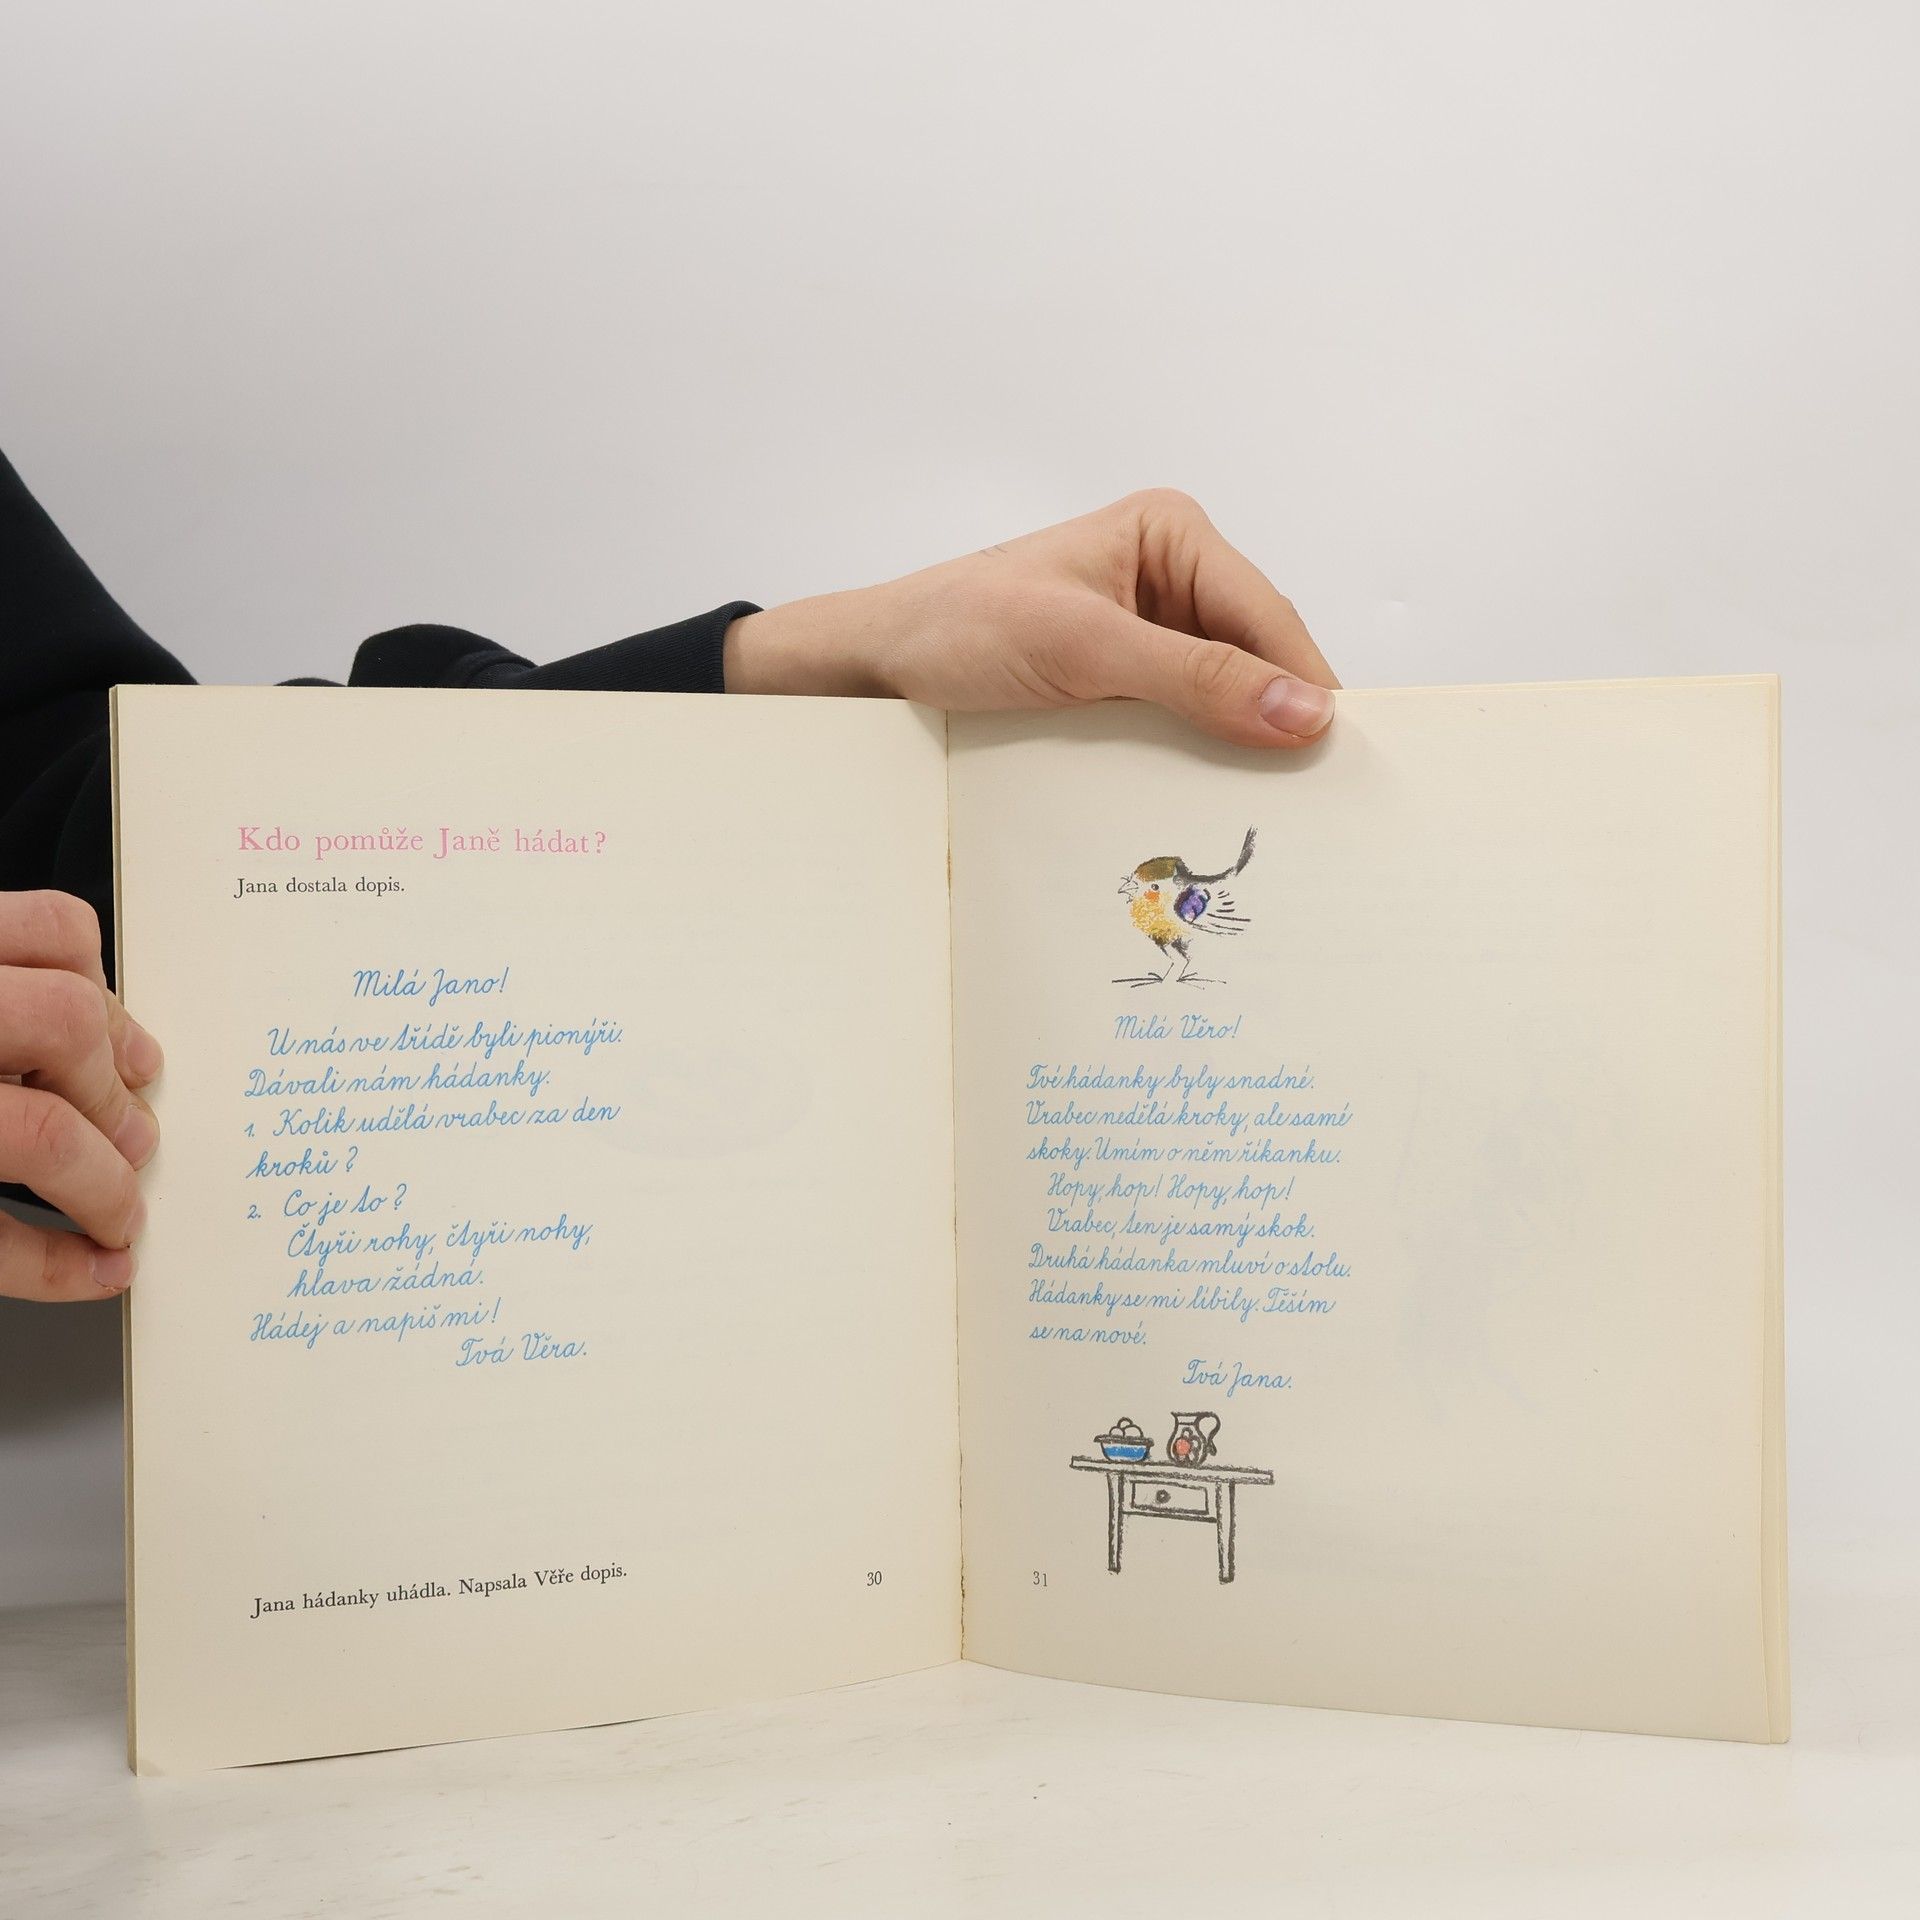 Kdo pomůže Janě hádat?
Jana dostala dopis.
Milá Jano!
U nás ve třídě byli pionýři.
Dávali nám hádanky.
1. Kolik udělá vrabec za den
kroků?
2. Co je to?
Čtyři rohy, čtyři nohy,
hlava žádná.
Hádej a napiš mi!
Tvá Věra.
Jana hádanky uhádla. Napsala Věře dopis.
30
Milá Věro!
Tvé hádanky byly snadné.
Vrabec nedělá kroky, ale samé
skoky. Umím o něm říkanku.
Hopy, hop! Hopy, hop!
Vrabec, ten je samý skok.
Druhá hádanka mluví o stolu.
Hádanky se mi líbily. Těším
se na nové.
Tvá Jana.
31